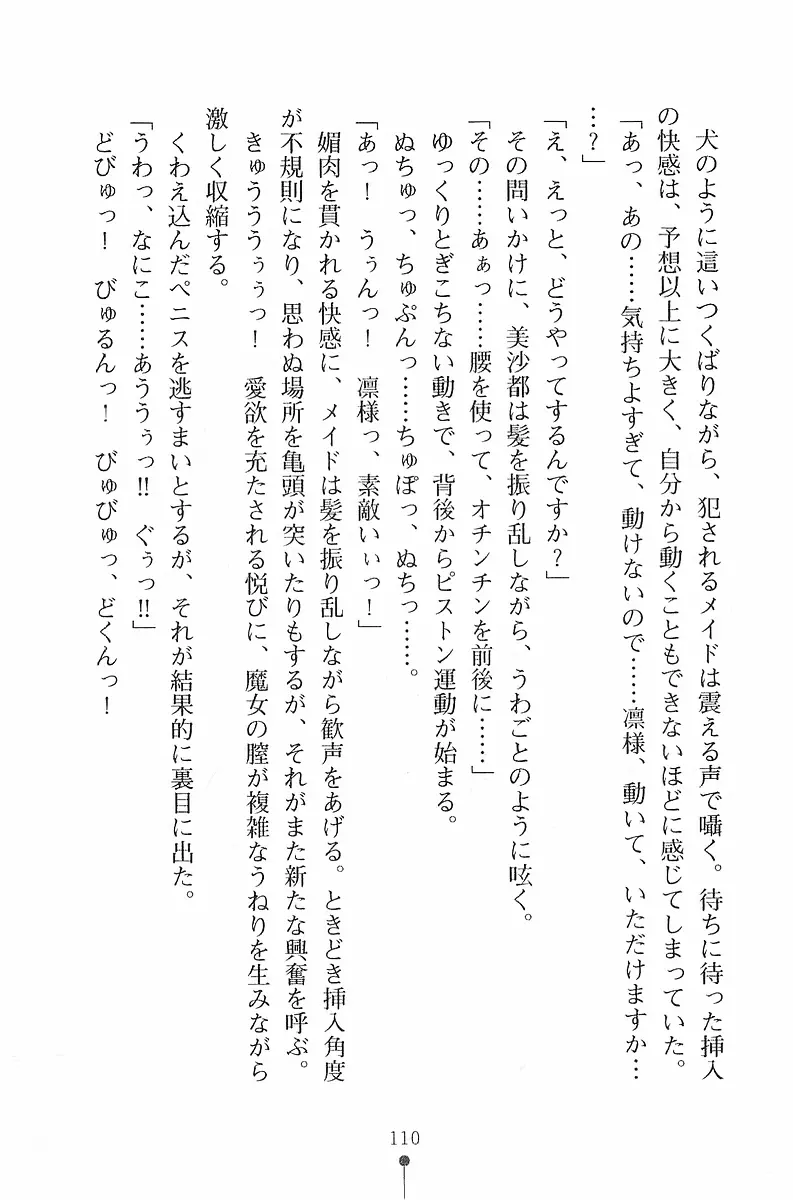 犬のように這いつくばりながら、犯されるメイドは震える声で囁く。待ちに待った挿入
の快感は、予想以上に大きく、自分から動くこともできないほどに感じてしまっていた。
「あっ、あの……気持ちよすぎて、動けないので……凛様、動いて、いただけますか…
…?」
「え、えっと、どうやってするんですか?」
その問いかけに、美沙都は髪を振り乱しながら、うわごとのように呟く。
「その……あぁっ……腰を使って、オチンチンを前後に……」
ゆっくりとぎこちない動きで、背後からピストン運動が始まる。
ぬちゅっ、ちゅぷんっ……ちゅぽっ、ぬちっ……。
「あっ! うぅんっ! 凛様っ、素敵いぃっ!」
媚肉を貫かれる快感に、メイドは髪を振り乱しながら歓声をあげる。ときどき挿入角度
が不規則になり、思わぬ場所を亀頭が突いたりもするが、それがまた新たな興奮を呼ぶ。
きゅうううぅぅっ! 愛欲を充たされる悦びに、魔女の膣が複雑なうねりを生みながら
激しく収縮する。
くわえ込んだペニスを逃すまいとするが、それが結果的に裏目に出た。
「うわっ、なにこ……あううぅっ!! ぐぅっ!!」
どびゅっ! びゅるんっ! びゅびゅっ、どくんっ!
110